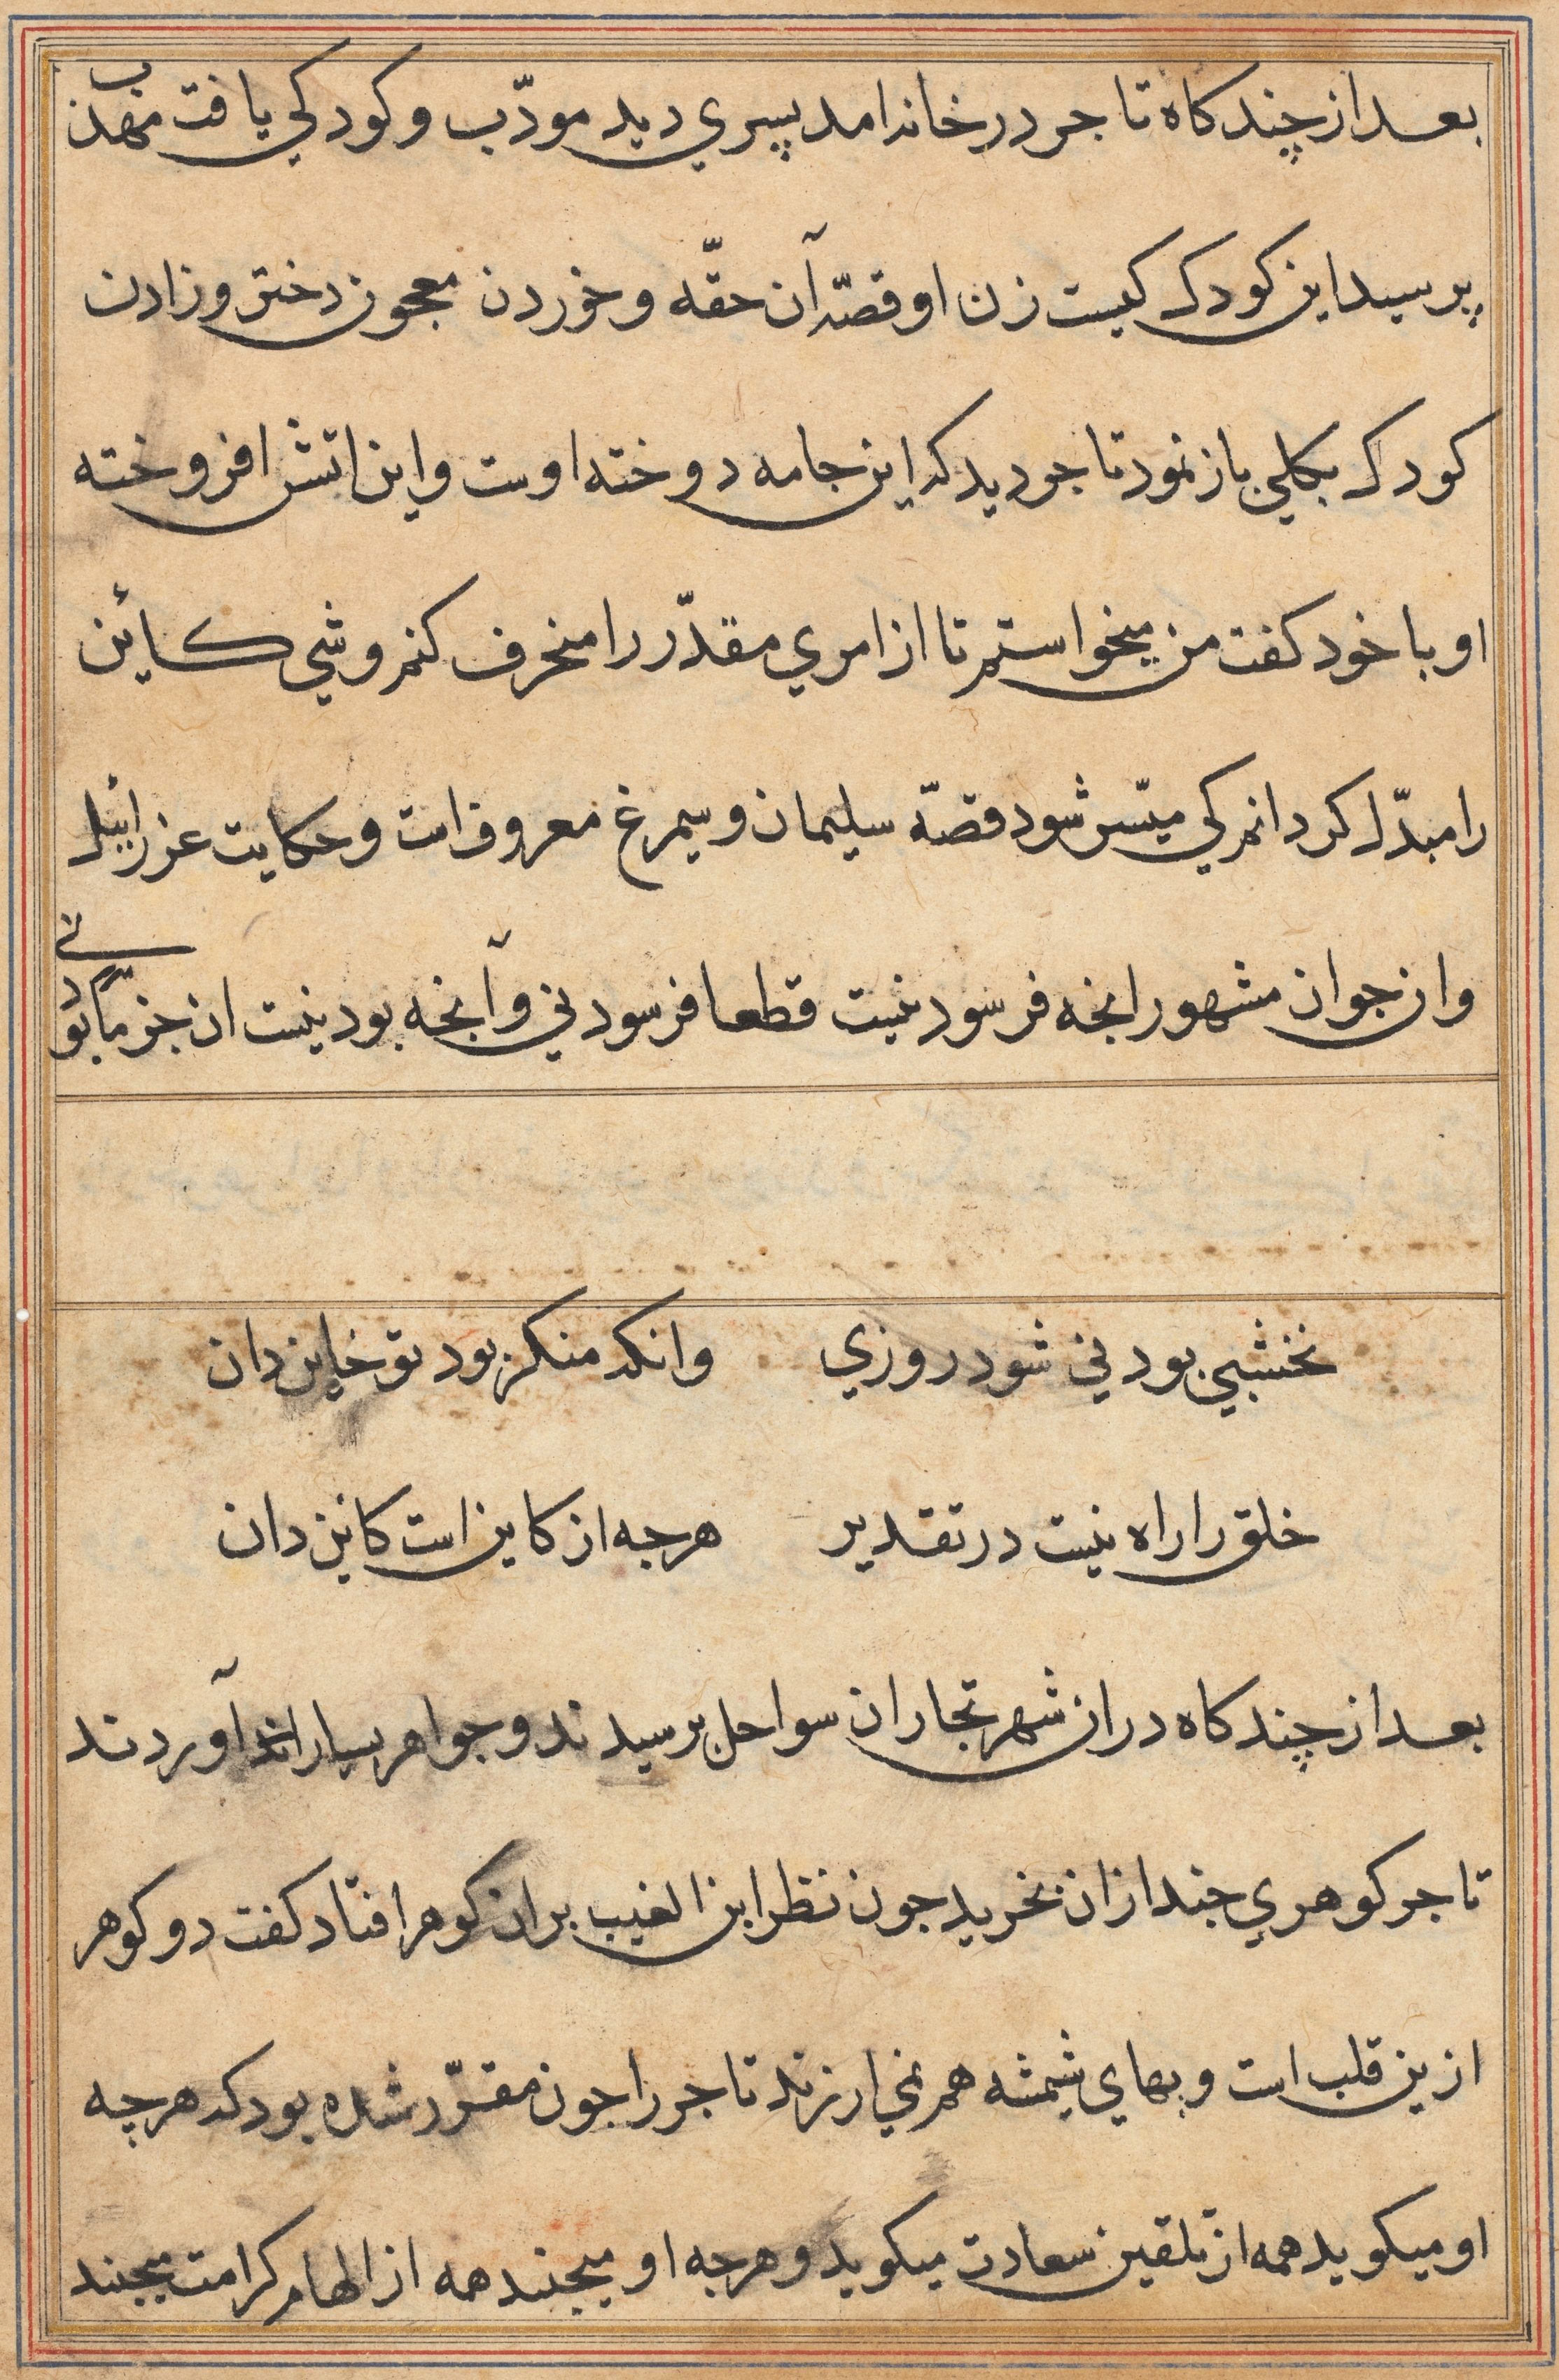 بعد از چند کاه تاجر در خانه امد پسري دید مودّب و کودکي یافت مهذب
پرسید این کودک کیست زن او قصّه آن حقّه و خوردن معجون دختر و زادن
کودک بکلي باز نمود تاجر دید که این جامه دوخته اوست و این اتش افروخته
او با خود کفت من میخواستم تا از امري مقدّر را منحرف کنم و شي کائن
را مبدّل کردانم کي میسّر شود قصّه سلیمان و سیمرغ معروف است و حکایت عزرائیل
و ان جوان مشهور انجه فرسود نیست قطعا فرسودني و آنجه بود نیست ان جز ما بودني
نخشبي بودني شود روزي وانکه منکر بود تو خاین دان
خلق را راه نیست در تقدیر هرجه از کاین است کاین دان
بعد از چند کاه در ان شهر تجار ان سواحل برسیدند و جواهر بسیار آوردند
تاجر کوهري جند از ان بخرید جون نظر ابن الغیب بر ان کوهر افتاد کفت دو کوهر
ازین قلب است و بهاي شیشه هم نمي ارزند تاجر را جون مقرّر شده بود که هرچه
او میکوید همه از تلقین سعادت میکوید و هرجه او میجنبد همه از الهام کرامت میجنبد